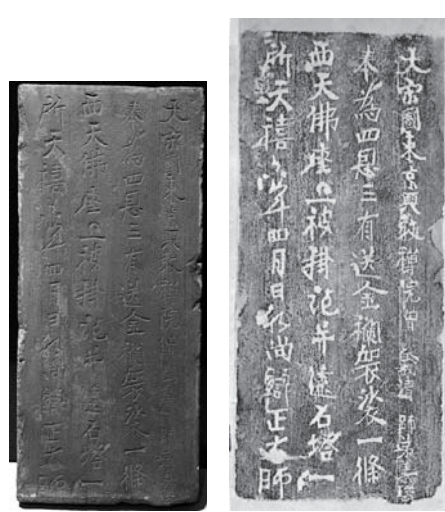 大宋國東京興教禪院僧
奉為四恩三有送金襴袈裟一條
西天佛座上被掛訖并建石塔一
所天禧六年四月日
大宋國東京興教禪院僧義清師弟義璘
奉為四恩三有送金襴袈裟一條
西天佛座上被掛訖并建石塔一
所天禧六年四月日和尚辯正大師